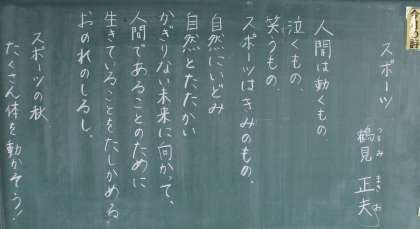 今月の詩
スポーツ
鶴見 正夫
つるみ まさお
人間は動くもの、
泣くもの、
笑うもの、
スポーツはきみのもの、
自然にいどみ
自然とたたかい
かぎりない未来に向かって、
人間であることのために
生きていることをたしかめる
おのれのしるし。
スポーツの秋
たくさん体を動かそう!